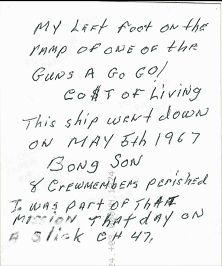 My Left foot on the
ramp of one of the
GUNS A GO GO!
CO$T of Living
This ship went down
ON MAY 5th 1967
Bong Son
8 Crewmembers perished
I was part of that
Mission That day on
A slick CH 47,